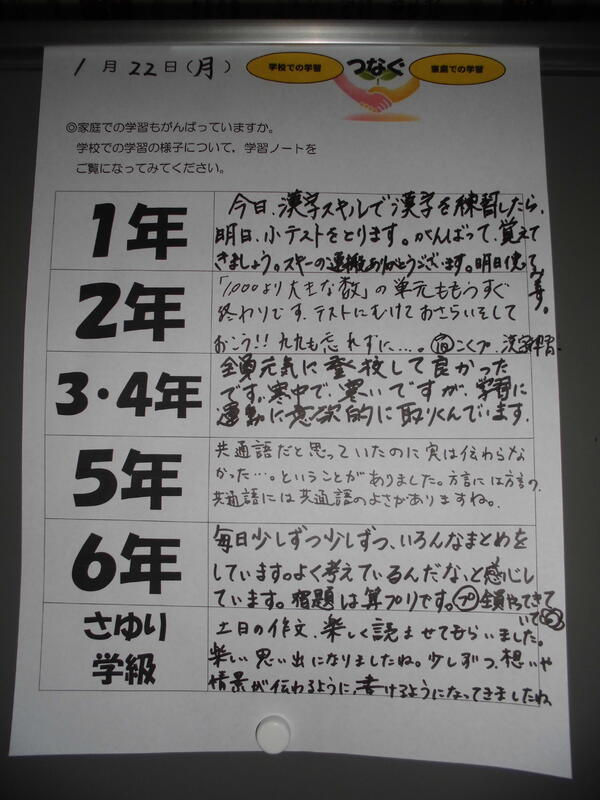 1月22日(月)
学校での学習 つなぐ 家庭での学習
◎家庭での学習もがんばっていますか。
学校での学習の様子について,学習ノートを
ご覧になってみてください。
1年
今日、漢字スキルで漢字を練習したら、
明日、小テストをとります。がんばって、覚えて
きましょう。スキーの運搬ありがとうございます。明日使
います。
2年
「1,000より大きな数」の単元ももうすぐ
終わりです。テストにむけておさらいをして
おこう!!九九も忘れずに…。宿こくプ、漢字練習。
3・4年
全員元気に登校して良かった
です。寒中で、寒いですが、学習に
運動に意欲的に取りくんでいます。
5年
共通語だと思っていたのに実は伝わらな
かった…。ということがありました。方言には方言の、
共通語には共通語のよさがありますね。
6年
毎日少しずつ少しずつ、いろんなまとめを
しています。よく考えているんだな、と感じし
ています。宿題は算プリです。プ全員やってきて
いてる
さゆり
学級
土日の作文、楽しく読ませてもらいました。
楽しい思い出になりましたね。少しずつ、想いや
情景が伝わるように、書けるようになってきましたね。